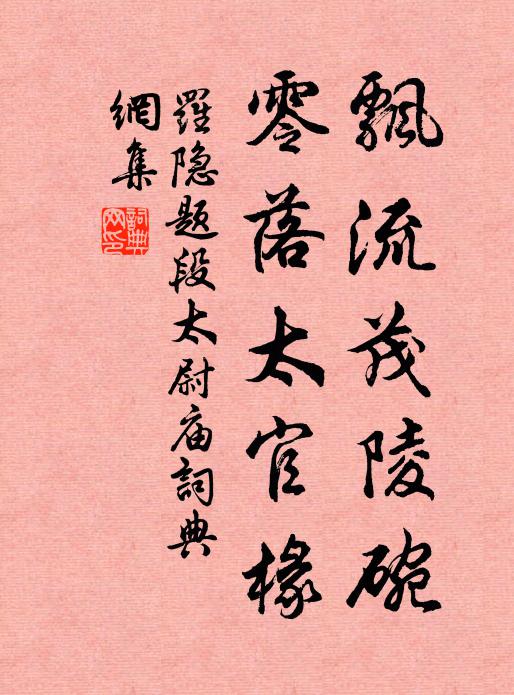 飄流茂陵碗
零落太官椽
羅隐題段太尉庙詞典
網集
詞典網印